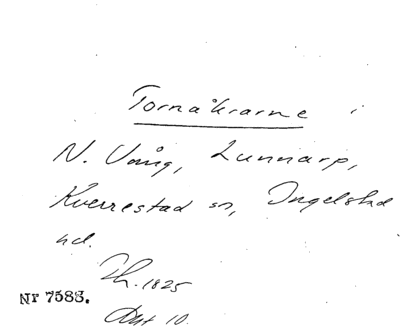 Tornåkrarne i
N. Vång, Lunnarp,
Kverrestad sn, Ingelstad
hd.
Th. 1825
Akt 10.
Nr 7583.